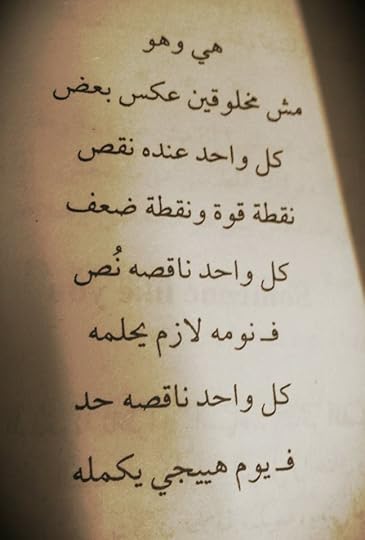 هي وهو
مش مخلوقين عكس بعض
كل واحد عنده نقص
نقطة قوة ونقطة ضعف
كل واحد ناقصه نُص
فـ نومه لازم يحلمه
كل واحد ناقصه حد
فـ يوم هييجي يكمله